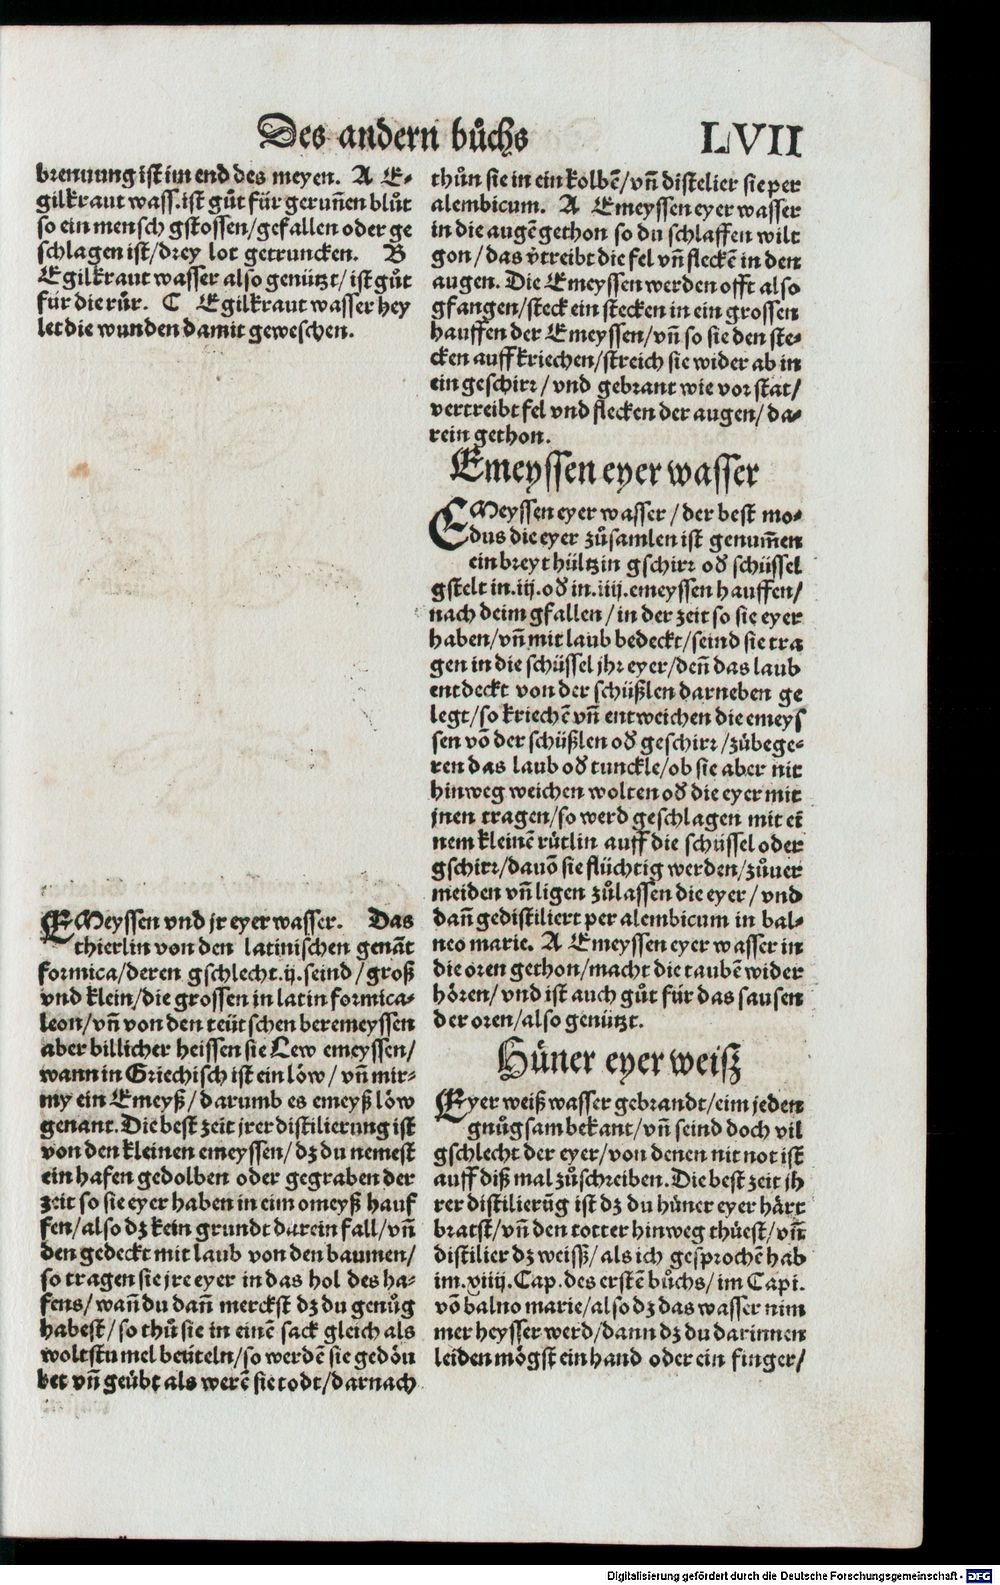 Des andern bůchs LVII
brennung ist im end des meyen. A E-
gilkraut wass. ist gůt für gerun̄en blůt
so ein mensch gstossen/gefallen oder ge
schlagen ist/drey lot getruncken. B
Egilkraut wasser also genützt/ist gůt
für die růr. C Egilkraut wasser hey
let die wunden damit geweschen.
EMeyssen vnd jr eyer wasser. Das
thierlin von den latinischen genāt
formica/deren gschlecht.ij.seind/groß
vnd klein/die grossen in latin formica-
leon/vn̄ von den teütschen beremeyssen
aber billicher heissen sie Lew emeyssen/
wann in Griechisch ist ein löw/vn̄ mir-
my ein Emeyß/darumb es emeyß löw
genant. Die best zeit jrer distilierung ist
von den kleinen emeyssen/dz du nemest
ein hafen gedolben oder gegraben der
zeit so sie eyer haben in eim omeyß hauf
fen/also dz kein grundt darein fall/vn̄
den gedeckt mit laub von den baumen/
so tragen sie jre eyer in das hol des ha-
fens/wan̄ du dan̄ merckst dz du genůg
habest/so thů sie in einē sack gleich als
woltstu mel beüteln/so werdē sie gedöu
bet vn̄ geübt als werē sie todt/darnach
thůn sie in ein kolbē/vn̄ distelier sie per
alembicum. A Emeyssen eyer wasser
in die augē gethon so du schlaffen wilt
gon/das v̄treibt die fel vn̄ fleckē in den
augen. Die Emeyssen werden offt also
gfangen/steck ein stecken in ein grossen
hauffen der Emeyssen/vn̄ so sie den ste-
cken auff kriechen/streich sie wider ab in
ein geschirr/vnd gebrant wie vor stat/
vertreibt fel vnd flecken der augen/da-
rein gethon.
Emeyssen eyer wasser
EMeyssen eyer wasser/der best mo-
dus die eyer zůsamlen ist genum̄en
ein breyt hültzin gschirr od̄ schüssel
gstelt in.iij.od̄ in.iiij.emeyssen hauffen/
nach deim gfallen/in der zeit so sie eyer
haben/vn̄ mit laub bedeckt/seind sie tra
gen in die schüssel jhr eyer/den̄ das laub
entdeckt von der schüßlen darneben ge
legt/so kriechē vn̄ entweichen die emeys
sen vō der schüßlen od̄ geschirr/zůbege-
ren das laub od̄ tunckle/ob sie aber nit
hinweg weichen wolten od̄ die eyer mit
jnen tragen/so werd geschlagen mit eī
nem kleinē rütlin auff die schüssel oder
gschirr/dauō sie flüchtig werden/zůuer
meiden vn̄ ligen zůlassen die eyer/vnd
dan̄ gedistiliert per alembicum in bal-
neo marie. A Emeyssen eyer wasser in
die oren gethon/macht die taubē wider
hören/vnd ist auch gůt für das sausen
der oren/also genützt.
Hüner eyer weisz
Eyer weiß wasser gebrandt/eim jeden
gnůgsam bekant/vn̄ seind doch vil
gschlecht der eyer/von denen nit not ist
auff diß mal zůschreiben. Die best zeit jh
rer distilierūg ist dz du hüner eyer härt
bratst/vn̄ den totter hinweg thüest/vn̄
distilier dz weiß/als ich gesprochē hab
im.xiiij.Cap.des erstē bůchs/im Capi.
vō balno marie/also dz das wasser nim
mer heysser werd/dann dz du darinnen
leiden mögst ein hand oder ein finger/
Digitalisierung gefördert durch die Deutsche Forschungsgemeinschaft - DFG